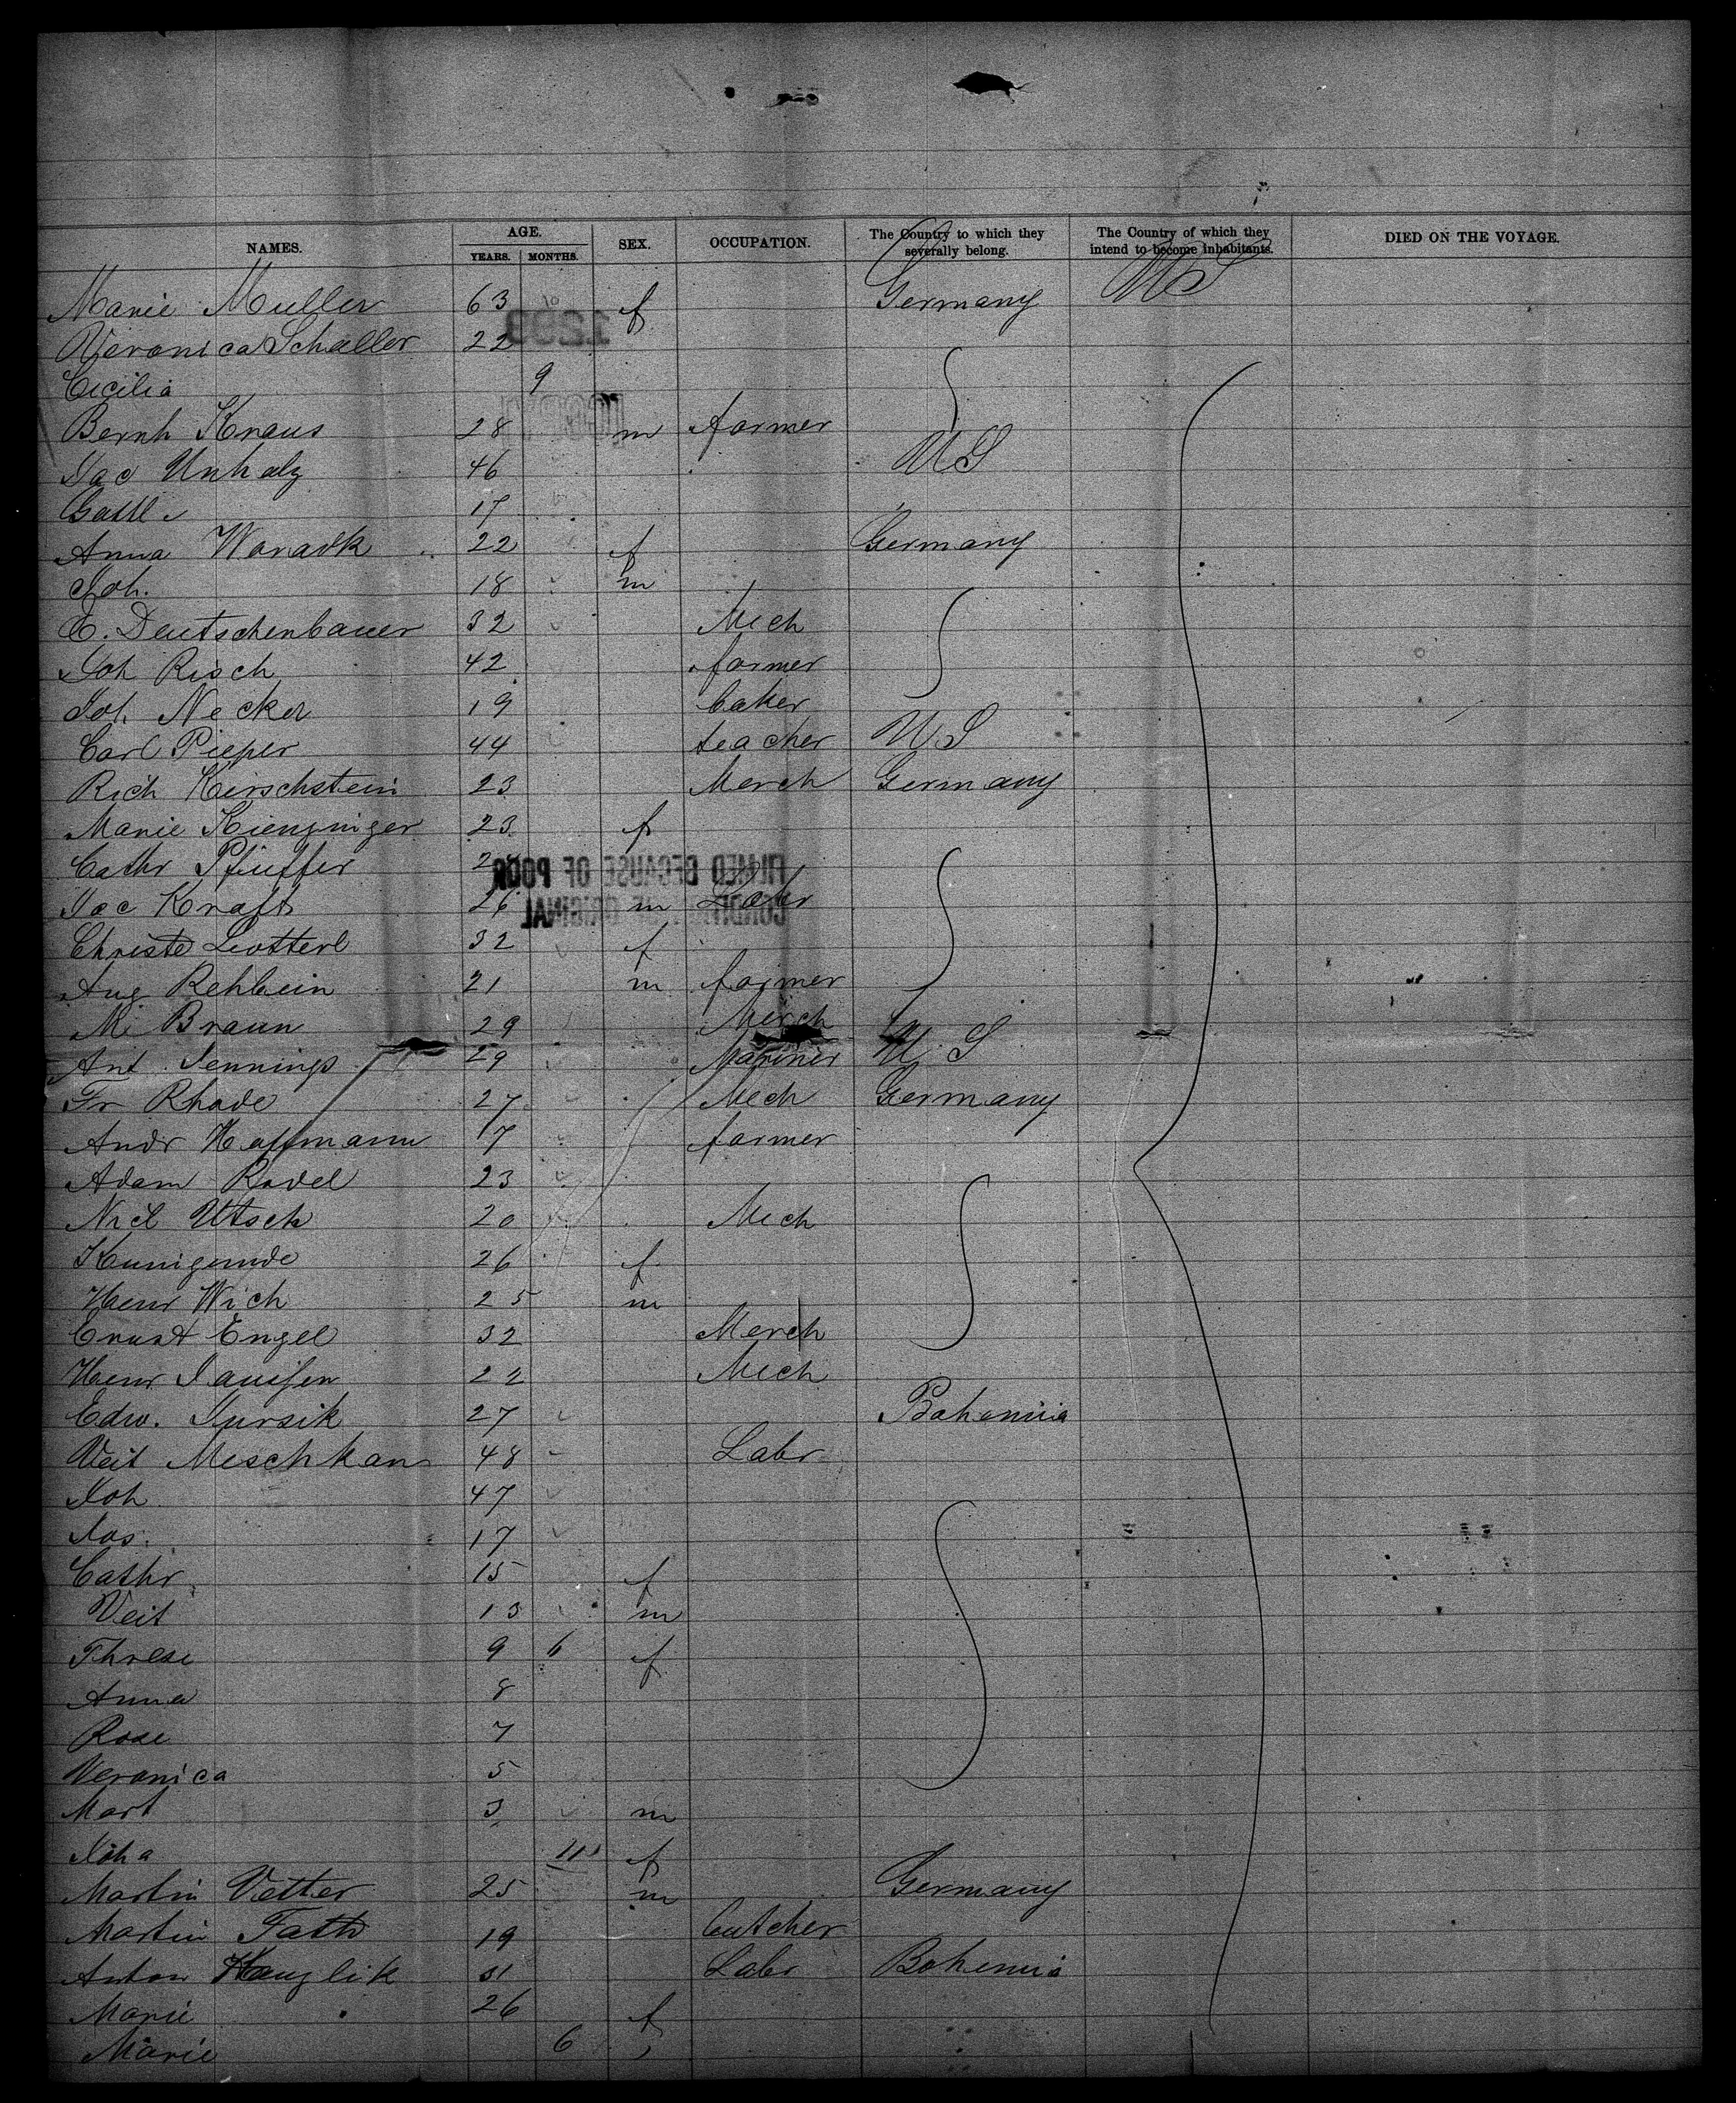 NAMES. AGE. YEARS. MONTHS. SEX. OCCUPATION. The Country to which they severally belong. The Country of which they intend to become inhabitants. DIED ON THE VOYAGE.
Marie Muller 63 f Germany US
Veronica Schaller 22
Cicilia 9
Bernh Kraus 28 m farmer
Jac Unholz 46 US
17
Anna 22 f Germany
Joh. 18 m
E. Deutschenbauer 32 Mech
Joh Risch 42 farmer
Joh Necker 19 baker
Carl Pieper 44 teacher US
Rich Kirschstein 23 Merch Germany
Marie Kienzniger 23 f
Cathr Pfeiffer
FILMED BECAUSE OF POOR
Jac Kraft 26 m Labr
CONDITION OF ORIGINAL
Christe 32 f
Aug Rehbein 21 m farmer
M. Braun 29 Merch
Ant Jennings 29 Mariner US
Fr Rhode 27 Mech Germany
Andr Hoffmann 17 farmer
Adam Rodel 23
Nicl Utsch 20 Mech
Kunigunde 26 f
Henr Wich 25 m
Ernst Engel 32 Merch
Henr Janssen 22 Mech
Edw. Jursik 27 Bohemia
Veit Meschkan 48 Labr
Joh 47
Jos. 17
Cathr 15 f
Veit 13 m
Threse 9 6 f
Anna 8
Rose 7
Veronica 5
Mart 3 m
Joha 11 f
Martin Vetter 25 m Germany
Martin Fath 19 butcher
Anton 31 Labr Bohemia
Marie 26 f
Marie 6